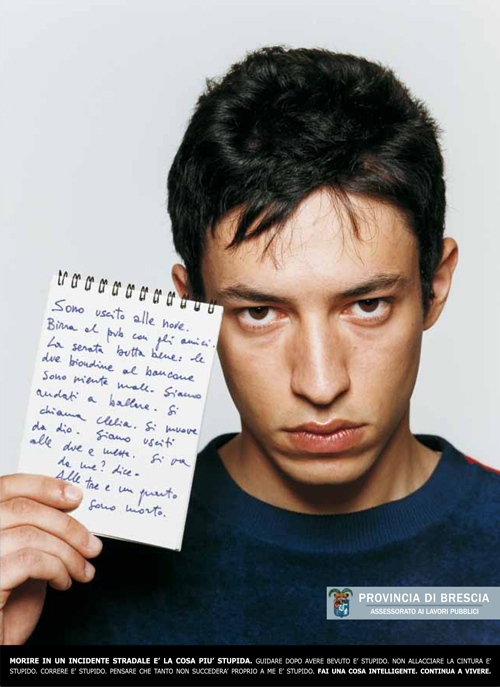 Sono uscito alle nove.
Birra al pub con gli amici.
La serata butta bene: le
due biondine al bancone
sono niente male. Siamo
andati a ballare. Si
chiama Clelia. Si muove
da dio. Siamo usciti
alle due e mezza. Si va
da me? dice.
Alle tre e un quarto
sono morto.
PROVINCIA DI BRESCIA
ASSESSORATO AI LAVORI PUBBLICI
MORIRE IN UN INCIDENTE STRADALE E' LA COSA PIU' STUPIDA. GUIDARE DOPO AVERE BEVUTO E' STUPIDO. NON ALLACCIARE LA CINTURA E'
STUPIDO. CORRERE E' STUPIDO. PENSARE CHE TANTO NON SUCCEDERA' PROPRIO A ME E' STUPIDO. FAI UNA COSA INTELLIGENTE. CONTINUA A VIVERE.